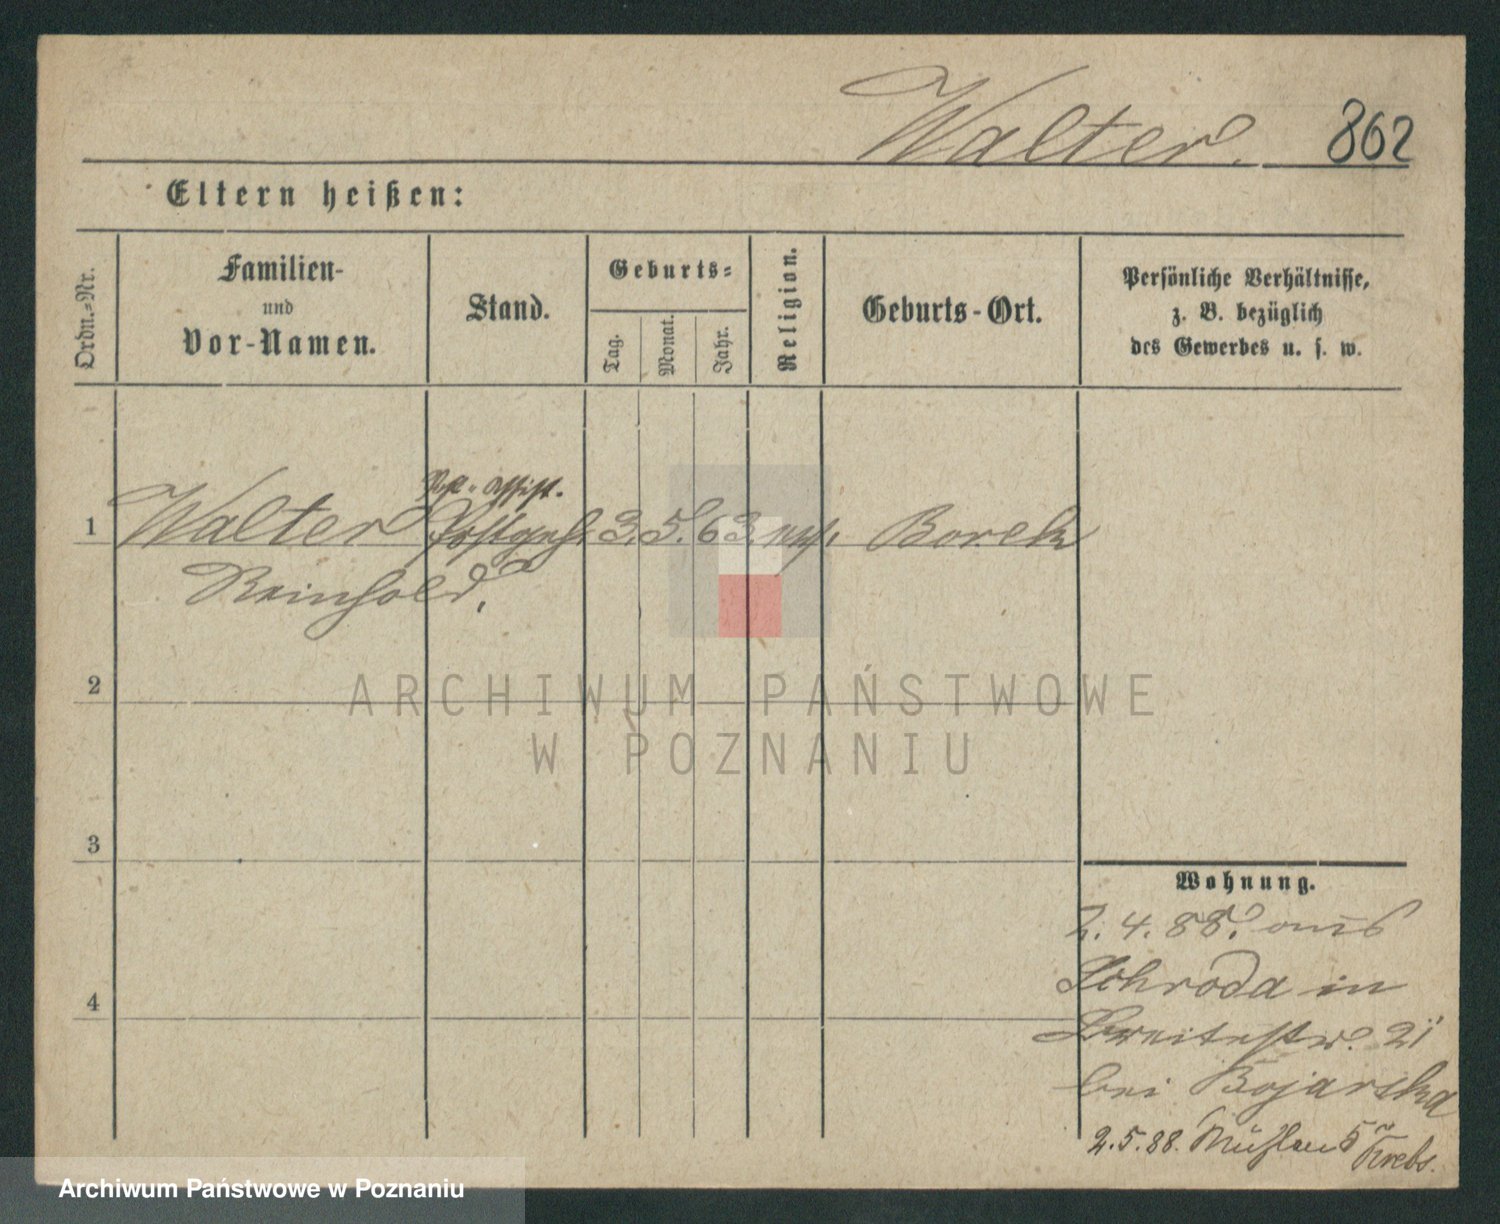 Walter. 862
Eltern heißen:
Ordn.-Nr.
Familien-
und
Vor-Namen.
Stand.
Geburts-
Tag.
Monat.
Jahr.
Religion.
Geburts-Ort.
Persönliche Verhältnisse,
z. B. bezüglich
des Gewerbes u. s. w.
Post-Assist.
1 Walter Postgeh. 3. 5. 63. Borek
Reinhold.
2
ARCHIWUM PAŃSTWOWE
W POZNANIU
3
Wohnung.
2. 4. 88. aus
Schroda in
Breitestr. 21
bei Bojarska
4
2. 5. 88. Mühlen 5 Krebs.
Archiwum Państwowe w Poznaniu